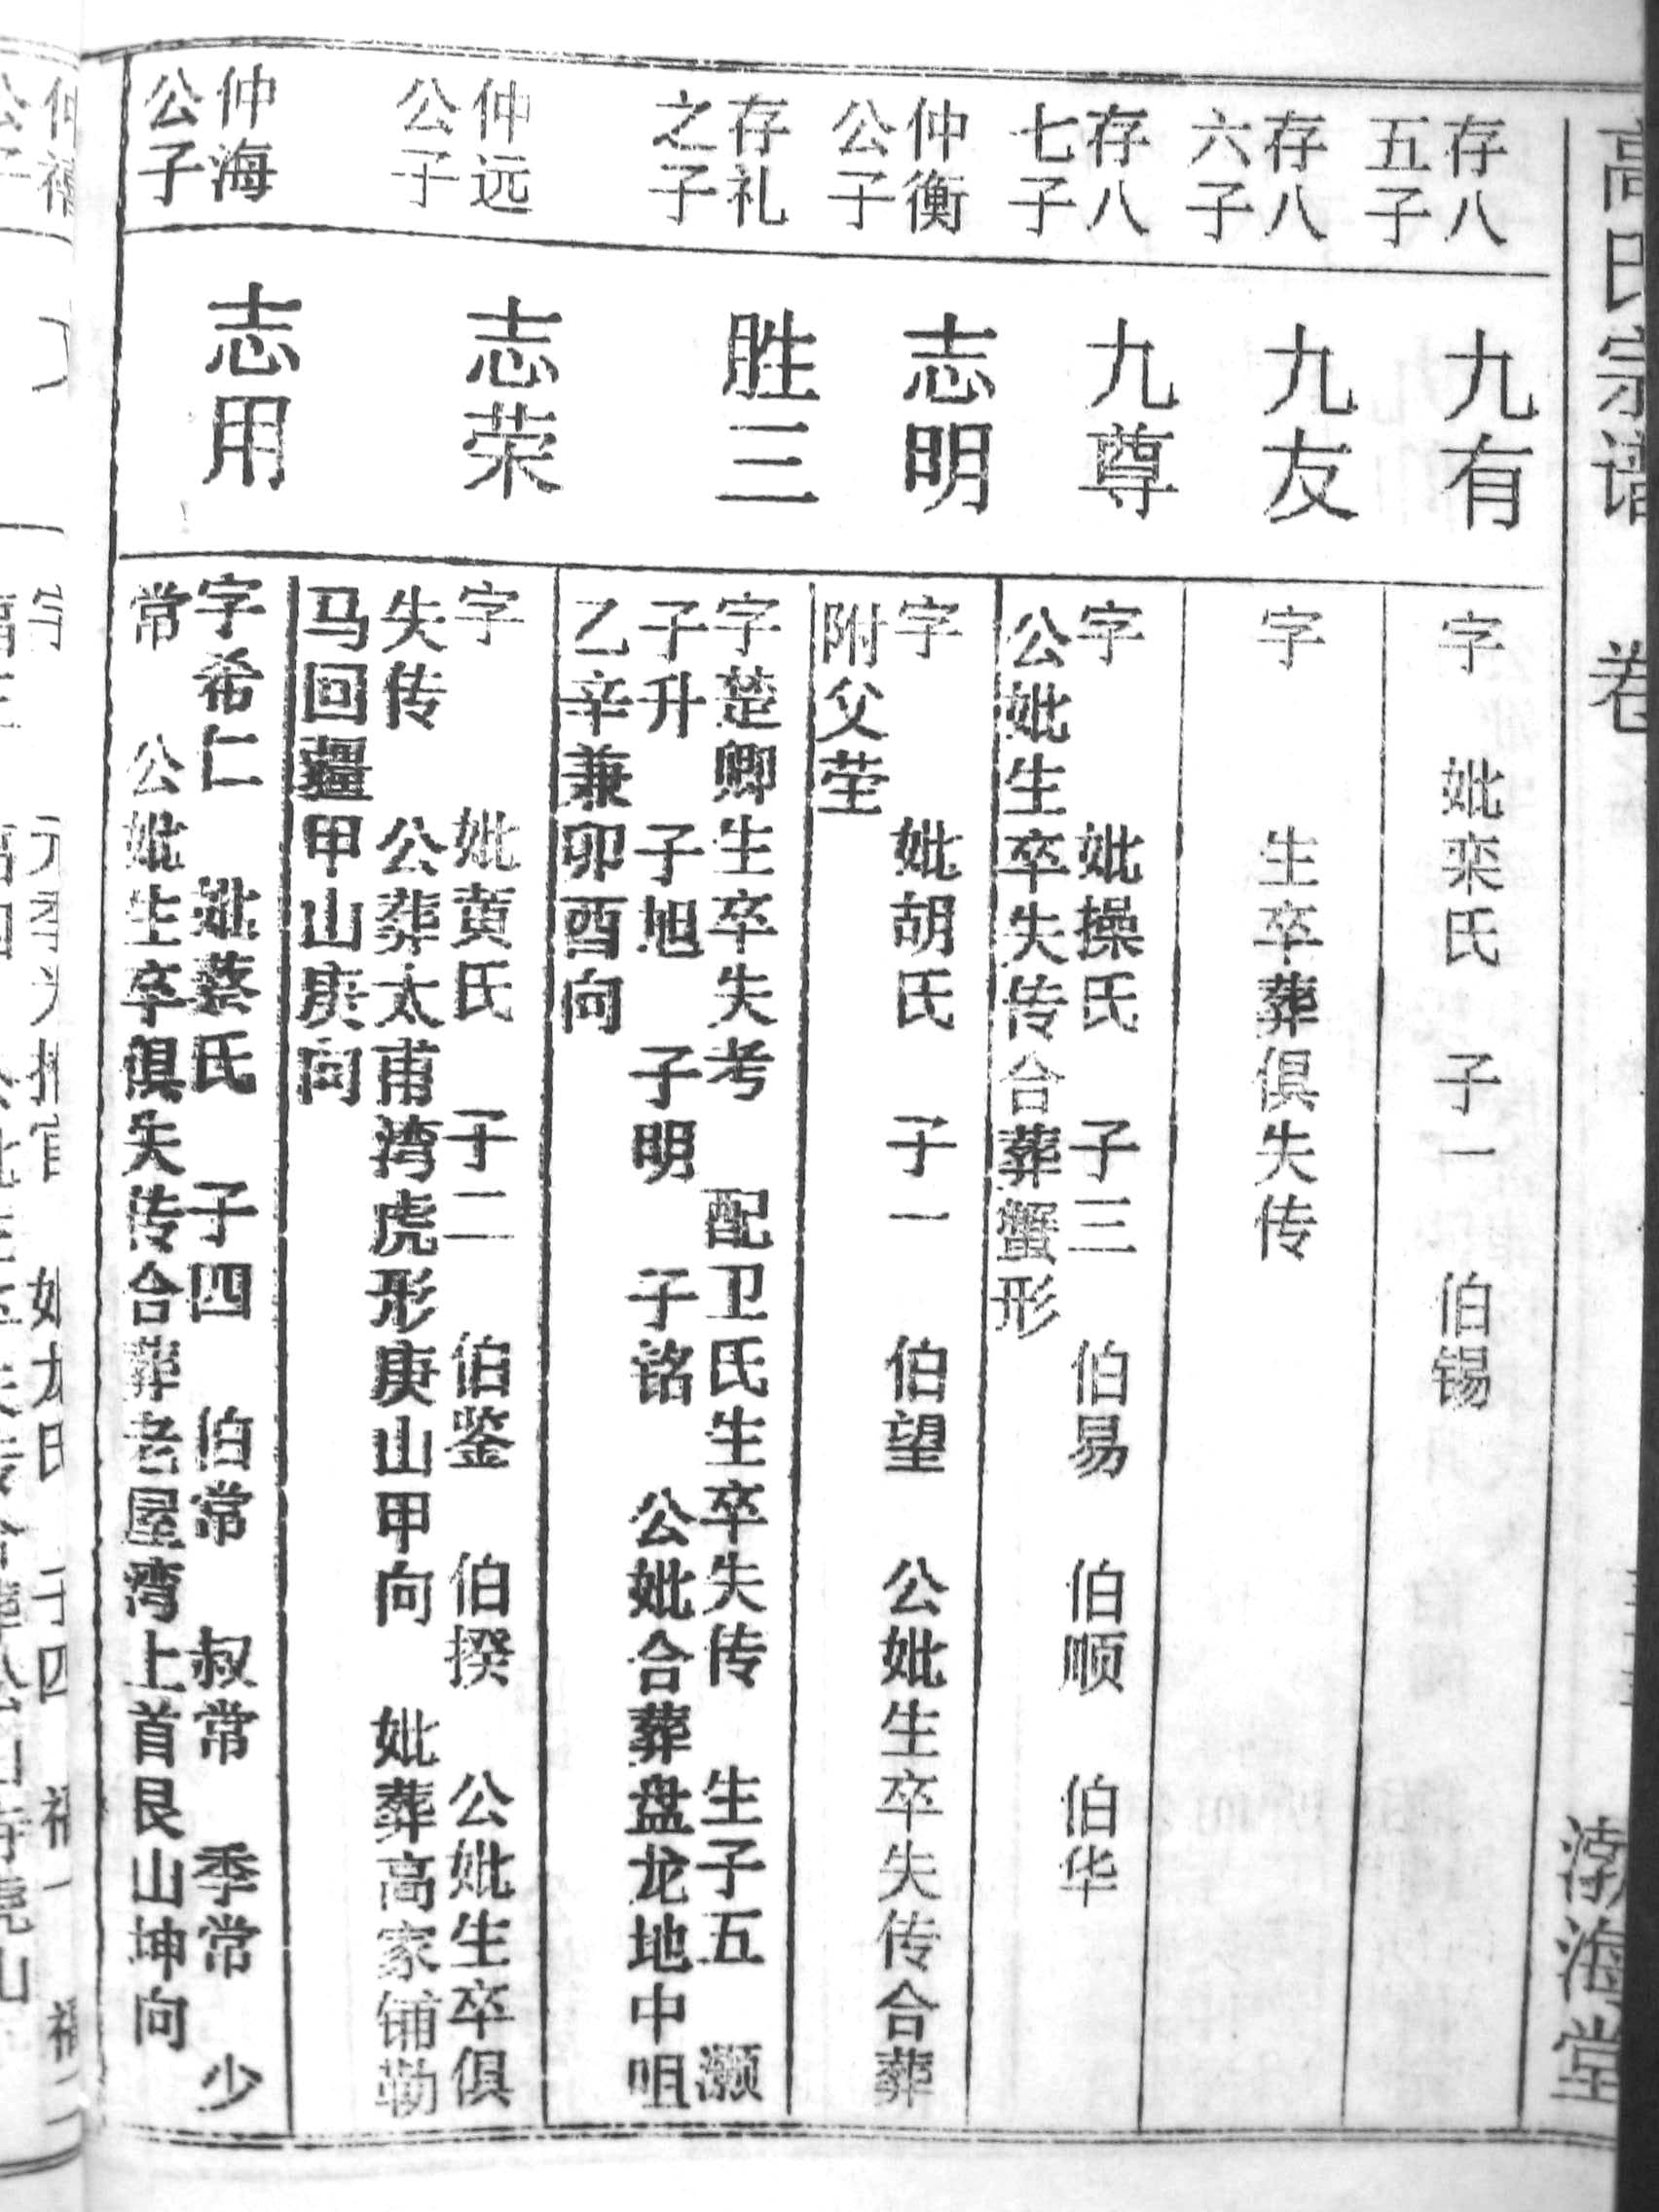 高氏宗谱 卷
渤海堂
存八
五子
九有
字 妣栾氏 子一 伯锡
存八
六子
九友
字 生卒葬俱失传
存八
七子
九尊
字 妣操氏 子三 伯易 伯顺 伯华
公妣生卒失传合葬蟹形
仲衡
公子
志明
字 妣胡氏 子一 伯望 公妣生卒失传合葬
附父茔
存礼
之子
胜三
字楚卿生卒失考 配卫氏生卒失传 生子五 灏
子升 子旭 子明 子铭 公妣合葬盘龙地中咀
乙辛兼卯酉向
仲远
公子
志荣
字 妣黄氏 子二 伯鉴 伯揆 公妣生卒俱
失传 公葬太甫湾虎形庚山甲向 妣葬高家铺勒
马回疆甲山庚向
仲海
公子
志用
字希仁 妣蔡氏 子四 伯常 叔常 季常 少
常 公妣生卒俱失传合葬老屋湾上首艮山坤向